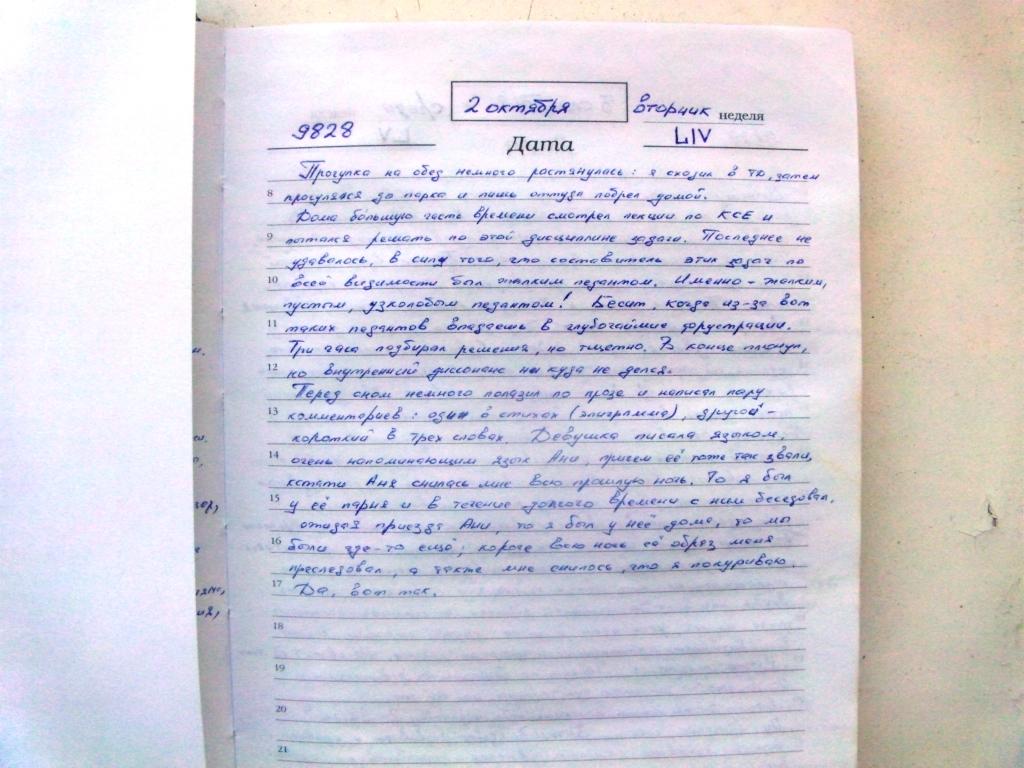 2 октября
вторник неделя
9828
LIV
Дата
Прогулка на обед немного растянулась: я сходил в ТЦ, затем
8 прогулялся до парка и лишь оттуда побрел домой.
Дома большую часть времени смотрел лекции по КСЕ и
9 пытался решать по этой дисциплине задачи. Последнее не
удавалось, в силу того, что составитель этих задач по
10 всей видимости был жалким педантом. Именно - жалким,
пустым, узколобым педантом! Бесит, когда из-за вот
11 таких педантов впадаешь в глубочайшие фрустрации.
Три часа подбирал решения, но тщетно. В конце плюнул,
12 но внутренний диссонанс ни куда не делся.
Перед сном немного полазил по прозе и написал пару
13 комментариев: один в стихах (эпиграмма), другой -
короткий в трех словах. Девушка писала языком,
14 очень напоминающим язык Ани, причем её тоже так звали,
кстати Аня снилась мне всю прошлую ночь. То я был
15 у её парня и в течение долгого времени с ним беседовал,
ожидая приезда Ани, то я был у неё дома, то мы
16 были где-то ещё; короче всю ночь её образ меня
преследовал, а также мне снилось, что я покуриваю.
17 Да, вот так.
18
19
20
21